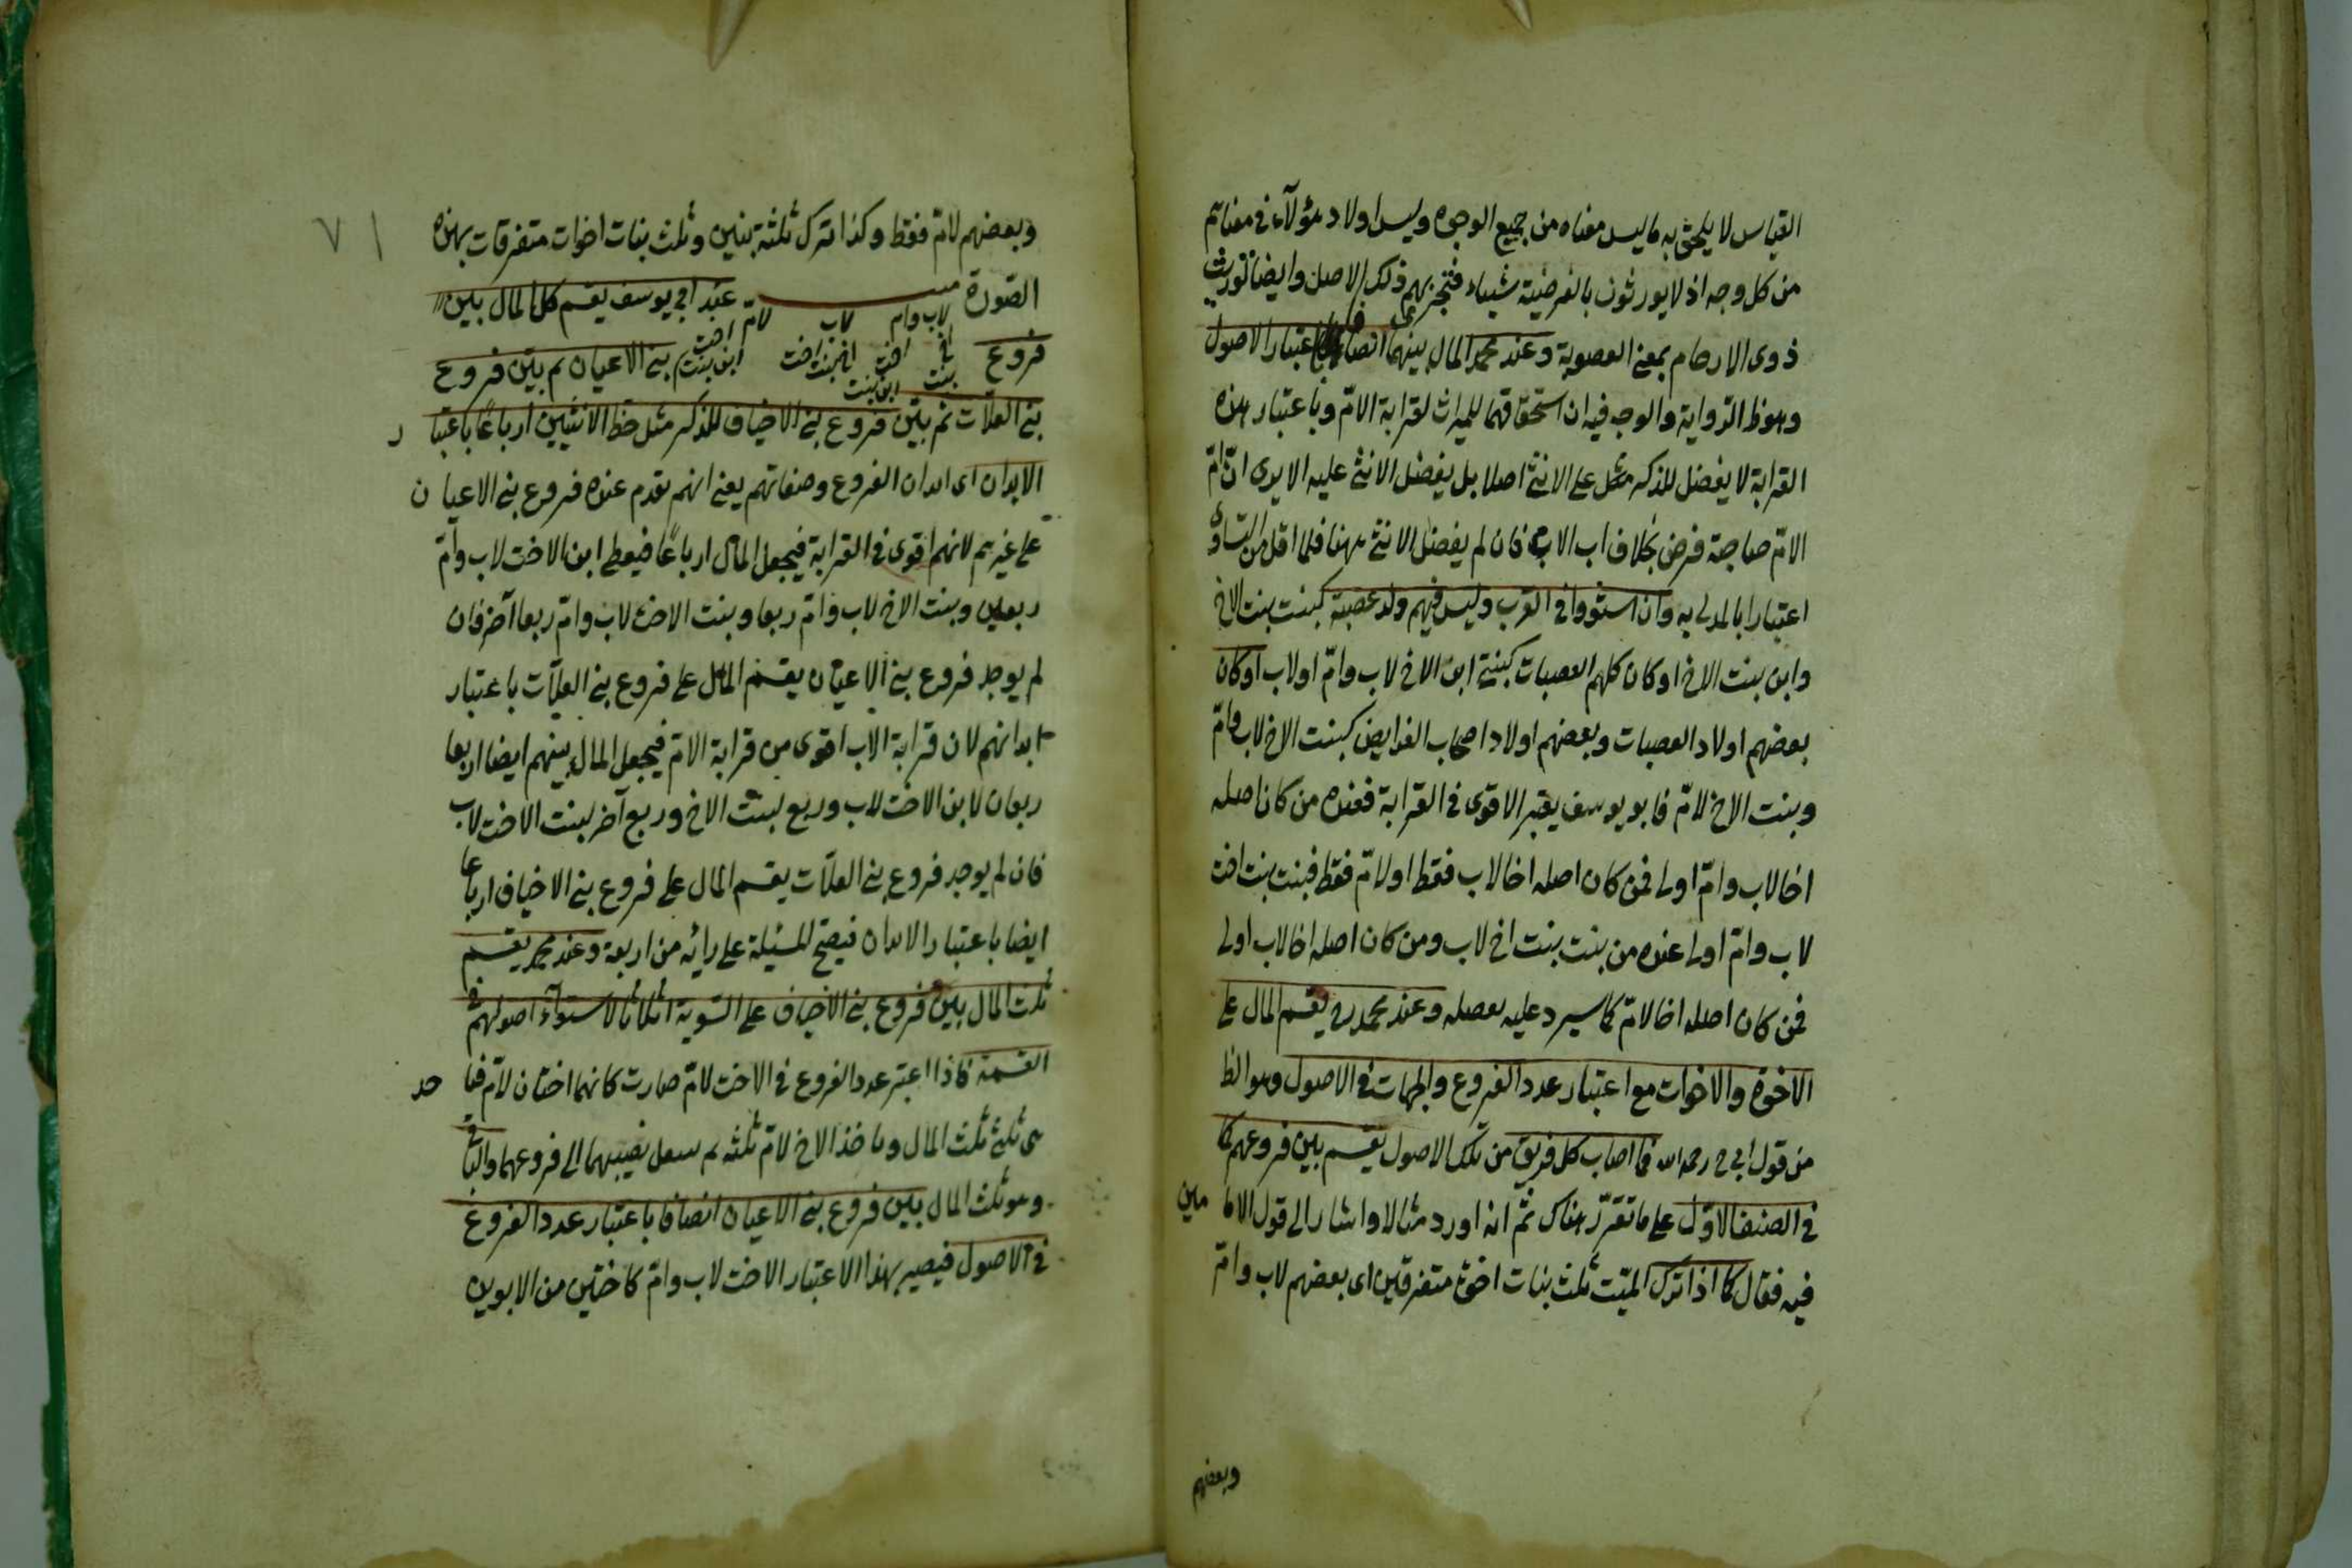 القياس لا يلحق به ما ليس معناه من جميع الوجوه وليس اولاد هؤلآء في معناهم
من كل وجه اذ لا يورثون بالفرضية شياء فتجري بهم ذلك الاصل وايضا توريث
ذوى الارحام بمعنى العصوبة وعند محمد المال بينهما انصافا باعتبار الاصول
وهو ظ الرواية والوجه فيه ان استحقاقهما للميراث لقرابة الامّ وباعتبار هذه
القرابة لا يفضل للذكر مثل على الانثى اصلا بل يفضل الانثى عليه الا يرى انّ امّ
الامّ صاحبة فرض بخلاف اب الاب فان لم يفضل الانثى ههنا فلما اقل من التساوى
اعتبارا بالمدلى به وان استووا فى القرب وليس فيهم ولد عصبة كبنت بنت الاخ
وابن بنت الاخ او كان كلهم العصبات كبنتى ابن الاخ لاب وامّ او لاب او كان
بعضهم اولاد العصبات وبعضهم اولاد اصحاب الفرايض كبنت الاخ لاب وامّ
وبنت الاخ لامّ فابو يوسف يعتبر الاقوى في القرابة فعنده من كان اصله
اخا لاب وامّ اولى فمن كان اصله اخا لاب فقط او لامّ فقط فبنت بنت اخت
لاب وامّ اولى عنده من بنت بنت اخ لاب ومن كان اصله اخا لاب اولى
فمن كان اصله اخا لامّ كما سيرد عليه بفصله وعند محمد رح يقسم المال على
الاخوة والاخوات مع اعتبار عدد الفروع والجهات في الاصول وهو الظ
من قول ابي ح رحمه الله فما اصاب كل فريق من تلك الاصول يقسم بين فروعهم كما
في الصنف الاوّل على ما تقرّر هناك ثم انه اورد مثالا واشار الى قول الاما مين
فيه فقال كما اذا ترك الميّت ثلث بنات اخوة متفرقين اى بعضهم لاب وامّ
وبعضهم
٧١
وبعضهم لامّ فقط وكذا ترك ثلثة بنين وثلث بنات اخوات متفرقات بهذه
الصورة عند ابي يوسف يقسم كل المال بين
لاب وام لاب لامّ
فروع بنى الاعيان ثم بين فروع
اخ اخت اخت اخت
بنت ابن بنت ابن بنت ابن بنت
بنى العلّات ثم بين فروع بنى الاخياف للذكر مثل حظ الانثيين ارباعًا باعتبا ر
الابدان اى ابدان الفروع وصفاتهم يعنى انهم يقدم عنده فروع بنى الاعيا ن
على غيرهم لانهم اقوى في القرابة فيجعل المال ارباعًا فيعطى ابن الاخت لاب وامّ
ربعين وبنت الاخ لاب وامّ ربعا وبنت الاخت لاب وامّ ربعا آخر فان
لم يوجد فروع بنى الاعيان يقسم المال على فروع بنى العلّات باعتبار
ابدانهم لان قرابة الاب اقوى من قرابة الامّ فيجعل المال بينهم ايضا اربعا
ربعان لابن الاخت لاب وربع لبنت الاخ وربع آخر لبنت الاخت لاب
فان لم يوجد فروع بنى العلّات يقسم المال على فروع بنى الاخياف ارباعا
ايضا باعتبار الابدان فيصحّ المسئلة على رائه من اربعة وعند محمد يقسم
ثلث المال بين فروع بنى الاخياف على السّوية اثلاثا لاستوآء اصولهم في
القسمة فاذا اعتبر عدد الفروع في الاخت لامّ صارت كانهما اختان لامّ فتا خذ
ى ثلثى ثلث المال وياخذ الاخ لامّ ثلثه ثم ينقل نصيبهما الى فروعهما والباقى
وهو ثلث المال بين فروع بنى الاعيان انصافا باعتبار عدد الفروع
في الاصول فيصير بهذا الاعتبار الاخت لاب وامّ كاختين من الابوين